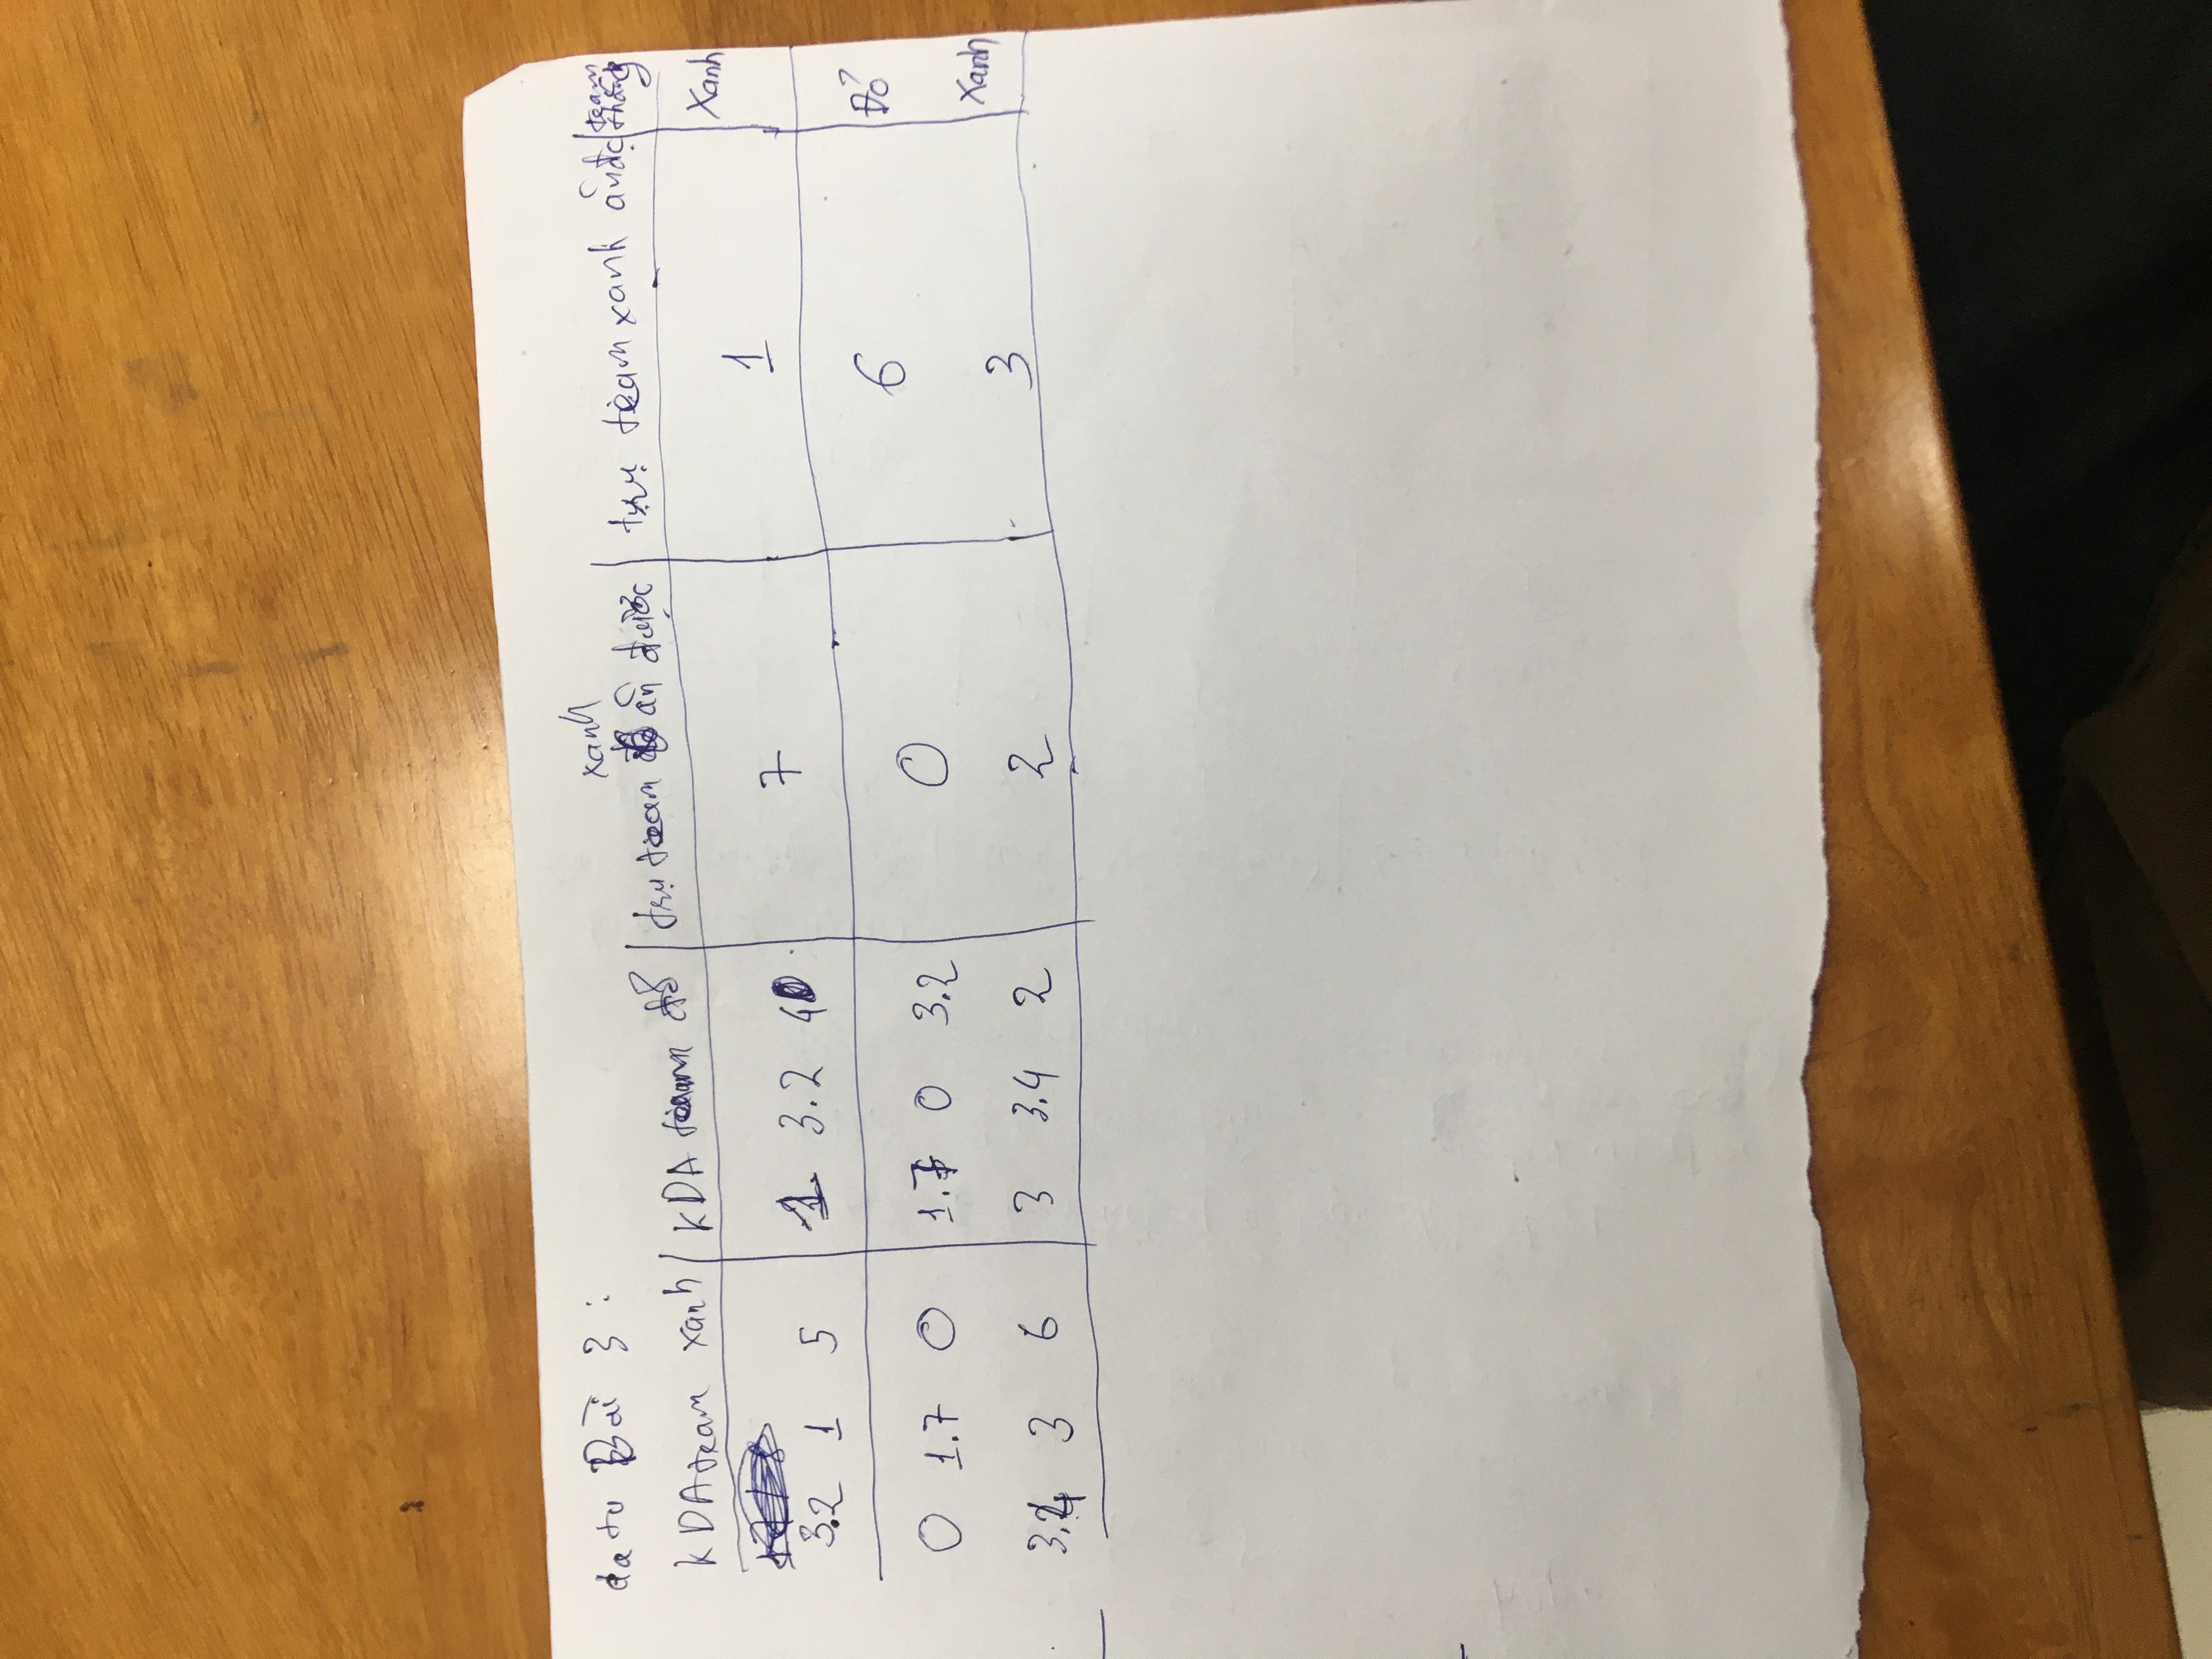 data Bài 3 :
KDA team xanh | KDA team đỏ | trụ team xanh ăn được | trụ team xanh ăn đc | team thắng
3.2 1 5 | 1 3.2 4 | 7 | 1 | Xanh
0 1.7 0 | 1.7 0 3.2 | 0 | 6 | Đỏ
3.4 3 6 | 3 3.4 2 | 2 | 3 | Xanh